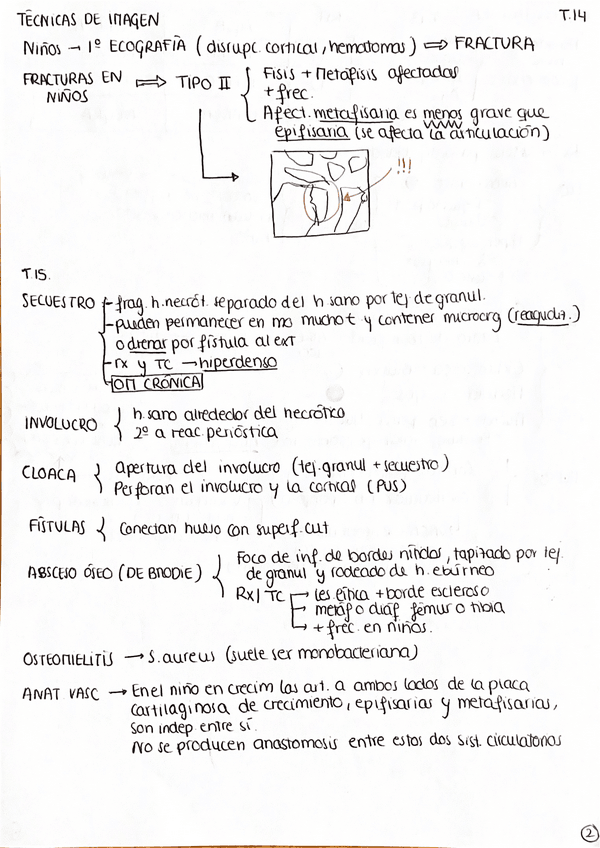 TÉCNICAS DE IMAGEN T.14
Niños → 1º ECOGRAFÍA (disrupc. cortical, hematomas) ⇒ FRACTURA
FRACTURAS EN NIÑOS ⇒ TIPO II
Fisis + Metáfisis afectadas
+ frec.
Afect. metafisaria es menos grave que
epifisaria (se afecta la articulación)
!!!
T.15.
SECUESTRO
frag. h. necrót. separado del h sano por tej de granul.
pueden permanecer en mo mucho t y contener microorg (reagudiz.)
o drenar por fístula al ext
rx y TC → hiperdenso
OM CRÓNICA
INVOLUCRO
h. sano alrededor del necrótico
2º a reac. perióstica
CLOACA
Apertura del involucro (tej. granul + secuestro)
Perforan el involucro y la cortical (PUS)
FÍSTULAS { Conectan hueso con superf. cut
ABSCESO ÓSEO (DE BRODIE)
Foco de inf. de bordes nítidos, tapizado por tej.
de granul y rodeado de h. ebúrneo
Rx / TC → les. lítica + borde escleroso
metáf o diáf fémur o tibia
+ frec. en niños.
OSTEOMIELITIS → S. aureus (suele ser monobacteriana)
ANAT VASC → En el niño en crecim las art. a ambos lados de la placa
cartilaginosa de crecimiento, epifisarias y metafisarias,
son indep entre sí.
No se producen anastomosis entre estos dos sist. circulatorios
2